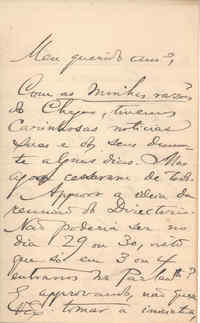 Meu querido am.º,
Com as minhas razões
de Chefe, tivemos
carinhosas noticias
suas e dos seus durante
alguns dias. Mas
agora cessaram de todo.
Approvo a ideia da
reunião do Directorio.
Não poderia ser no
dia 29 ou 30, visto
que só em 3 ou 4
entramos na Parlamº?
E approvando, não quer
tomar a iniciativa,